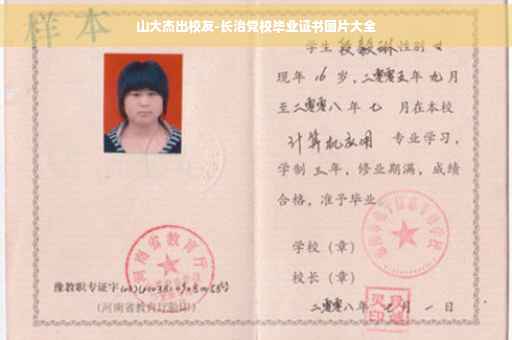 山大杰出校友-长治党校毕业证书图片大全
样本
学生 段毅琳 性别 女
现年 16 岁，二零零五年 九 月
至二零零八年 七 月在本校
计算机应用 专业学习，
学制 三 年，修业期满，成绩
合格，准予毕业
学校（章）
校长（章）
二零零八年 七 月 一 日
河南省教育厅
豫教职专证字
（河南省教育厅验印）